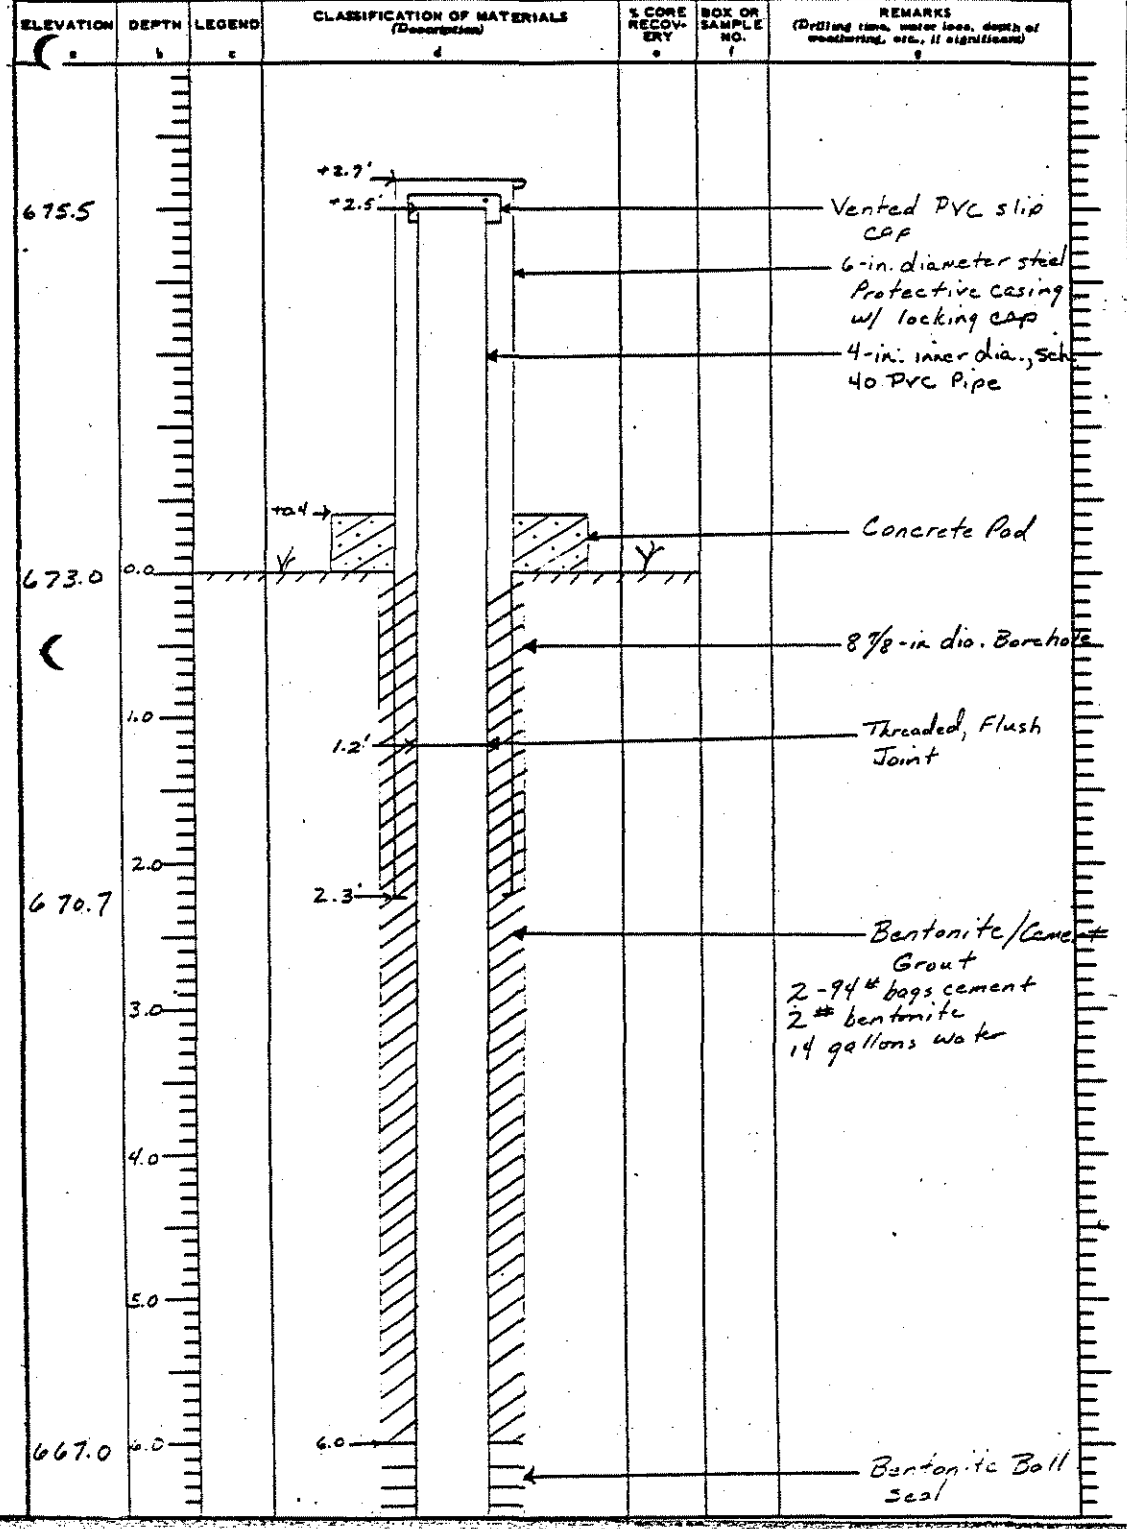 ELEVATION DEPTH LEGEND CLASSIFICATION OF MATERIALS (Description) % CORE RECOV-ERY BOX OR SAMPLE NO. REMARKS (Drilling time, water loss, depth of weathering, etc., if significant)
a b c d e f g
+2.9'
675.5 +2.5' Vented PVC slip
cap
6-in. diameter steel
Protective casing
w/ locking cap
4-in. inner dia., sch
40 PVC Pipe
+0.4
Concrete Pad
673.0 0.0
8 7/8-in dia. Borehole
1.0
1.2' Threaded, Flush
Joint
2.0
670.7 2.3'
Bentonite/Cement
Grout
2-94# bags cement
3.0 2# bentonite
14 gallons water
4.0
5.0
667.0 6.0 6.0
Bentonite Ball
Seal